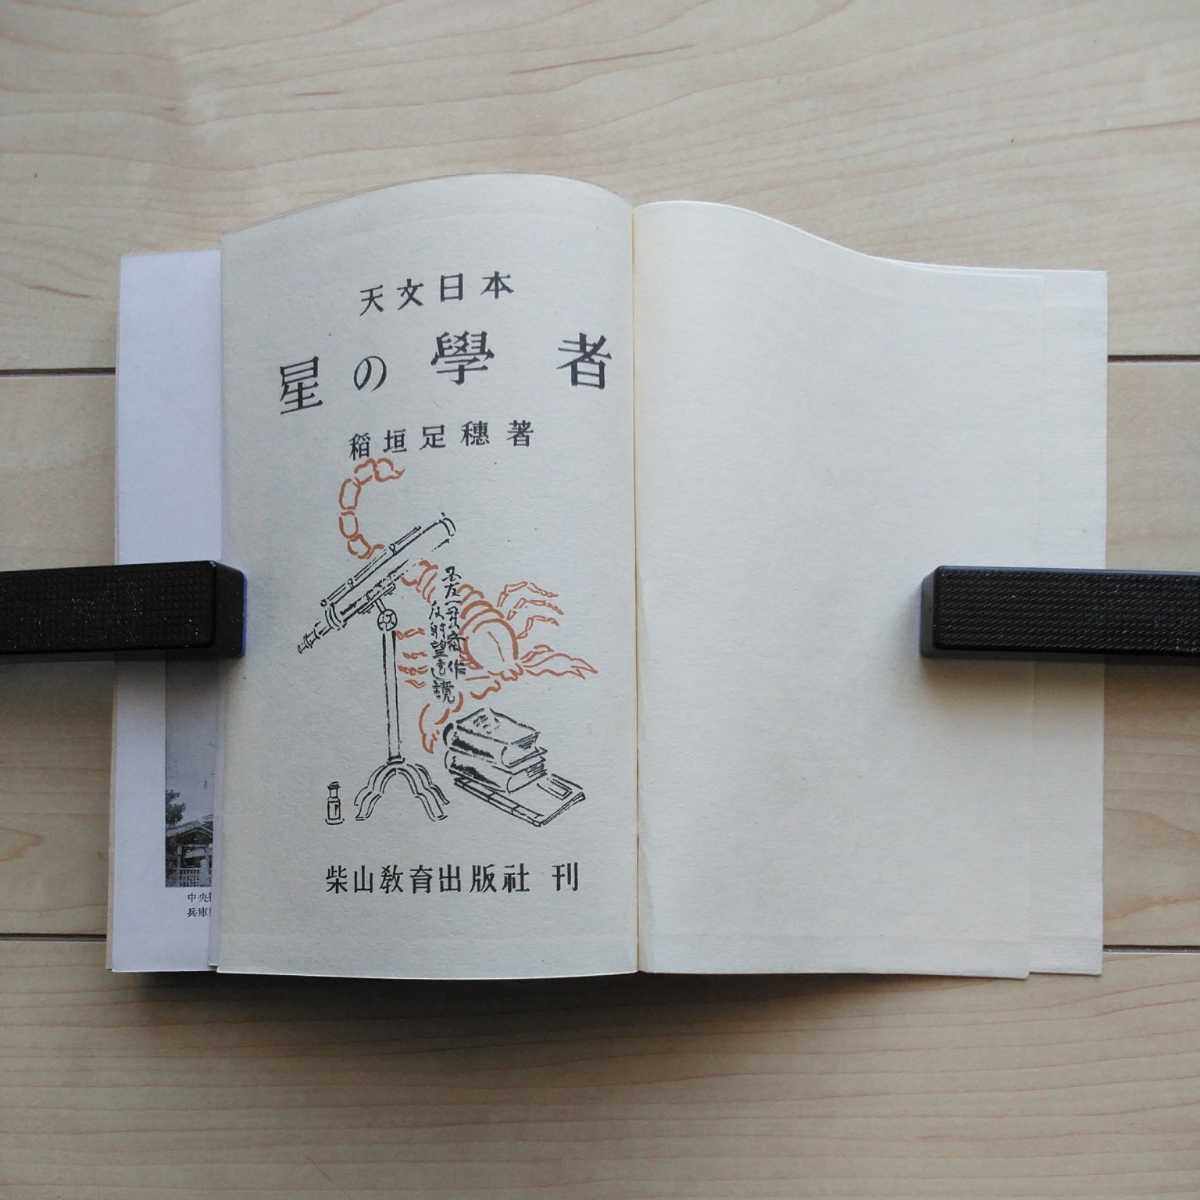 天文日本
星の學者
稻垣足穗著
国友一貫斎作
反射望遠鏡
柴山教育出版社 刊
中央
兵庫